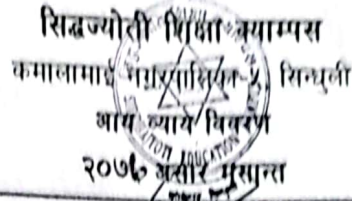 सिद्धज्योती शिक्षा क्याम्पस
कमालामाई नगरपालिका-५, सिन्धुली
आय व्याय विवरण
२०७७ असार मसान्त
EDUCATION